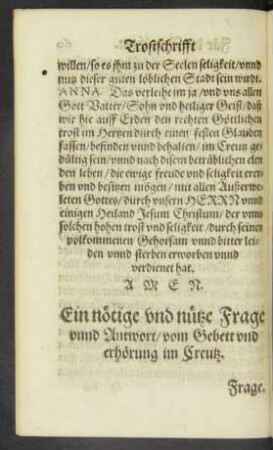 Trostschrifft
willen/so es jhm zu der Seelen seligkeit/vnnd
nutz dieser guten löblichen Stadt sein wirdt.
ANNA. Das verleihe im ja/vnd vns allen
Gott Vatter/Sohn vnd heiliger Geist/daß
wir hie auff Erden den rechten Göttlichen
trost im Hertzen durch einen festen Glauben
fassen/befinden vnnd behalten/im Creutz ge-
dültig sein/vnnd nach disem betrüblichen elen
den leben/die ewige freude vnd seligkeit erer-
ben vnd besitzen mögen/mit allen Außerwe-
leten Gottes/durch vnsern HERRN vnnd
einigen Heiland Jesum Christum/der vnns
solchen hohen trost vnd seligkeit/durch seinen
volkommenen Gehorsam vnnd bitter lei-
den vnnd sterben erworben vnnd
verdienet hat.
A M E N.
Ein nötige vnd nütze Frage
vnnd Antwort/vom Gebett vnd
erhörung im Creutz.
Frage.